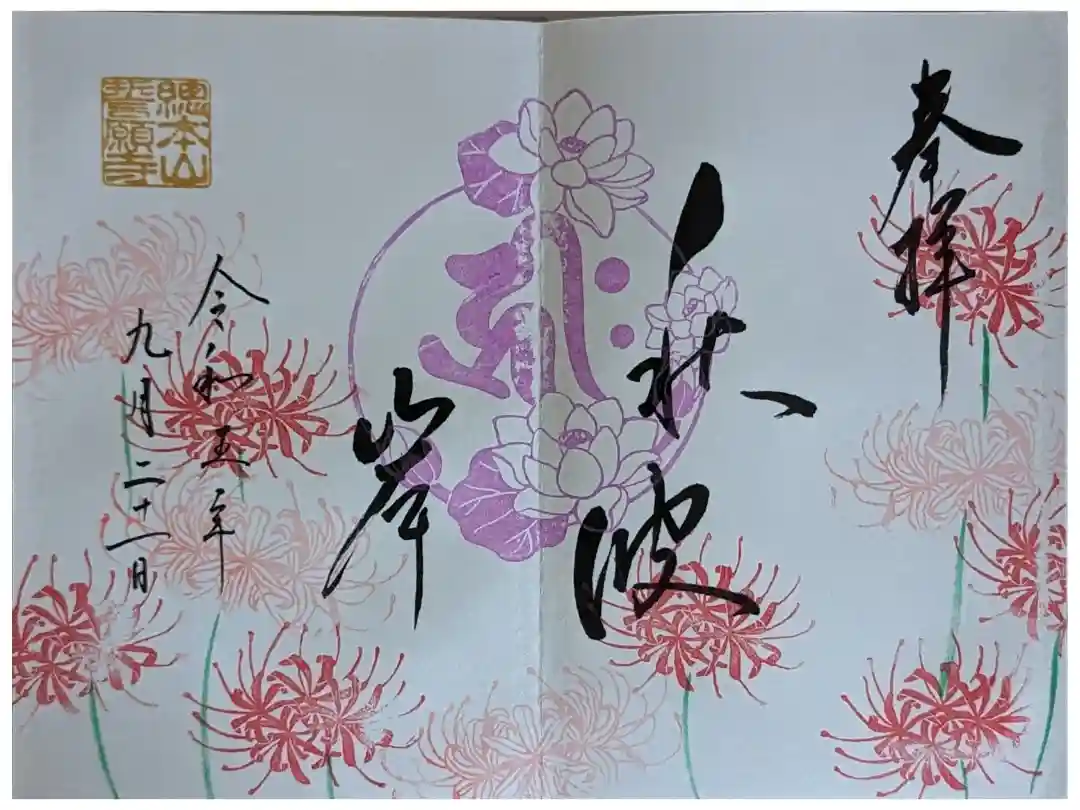 奉拝
秋彼
𑖮𑖿𑖨𑖱𑖾
岸
令和五年
九月二十一日
總本山
誓願寺